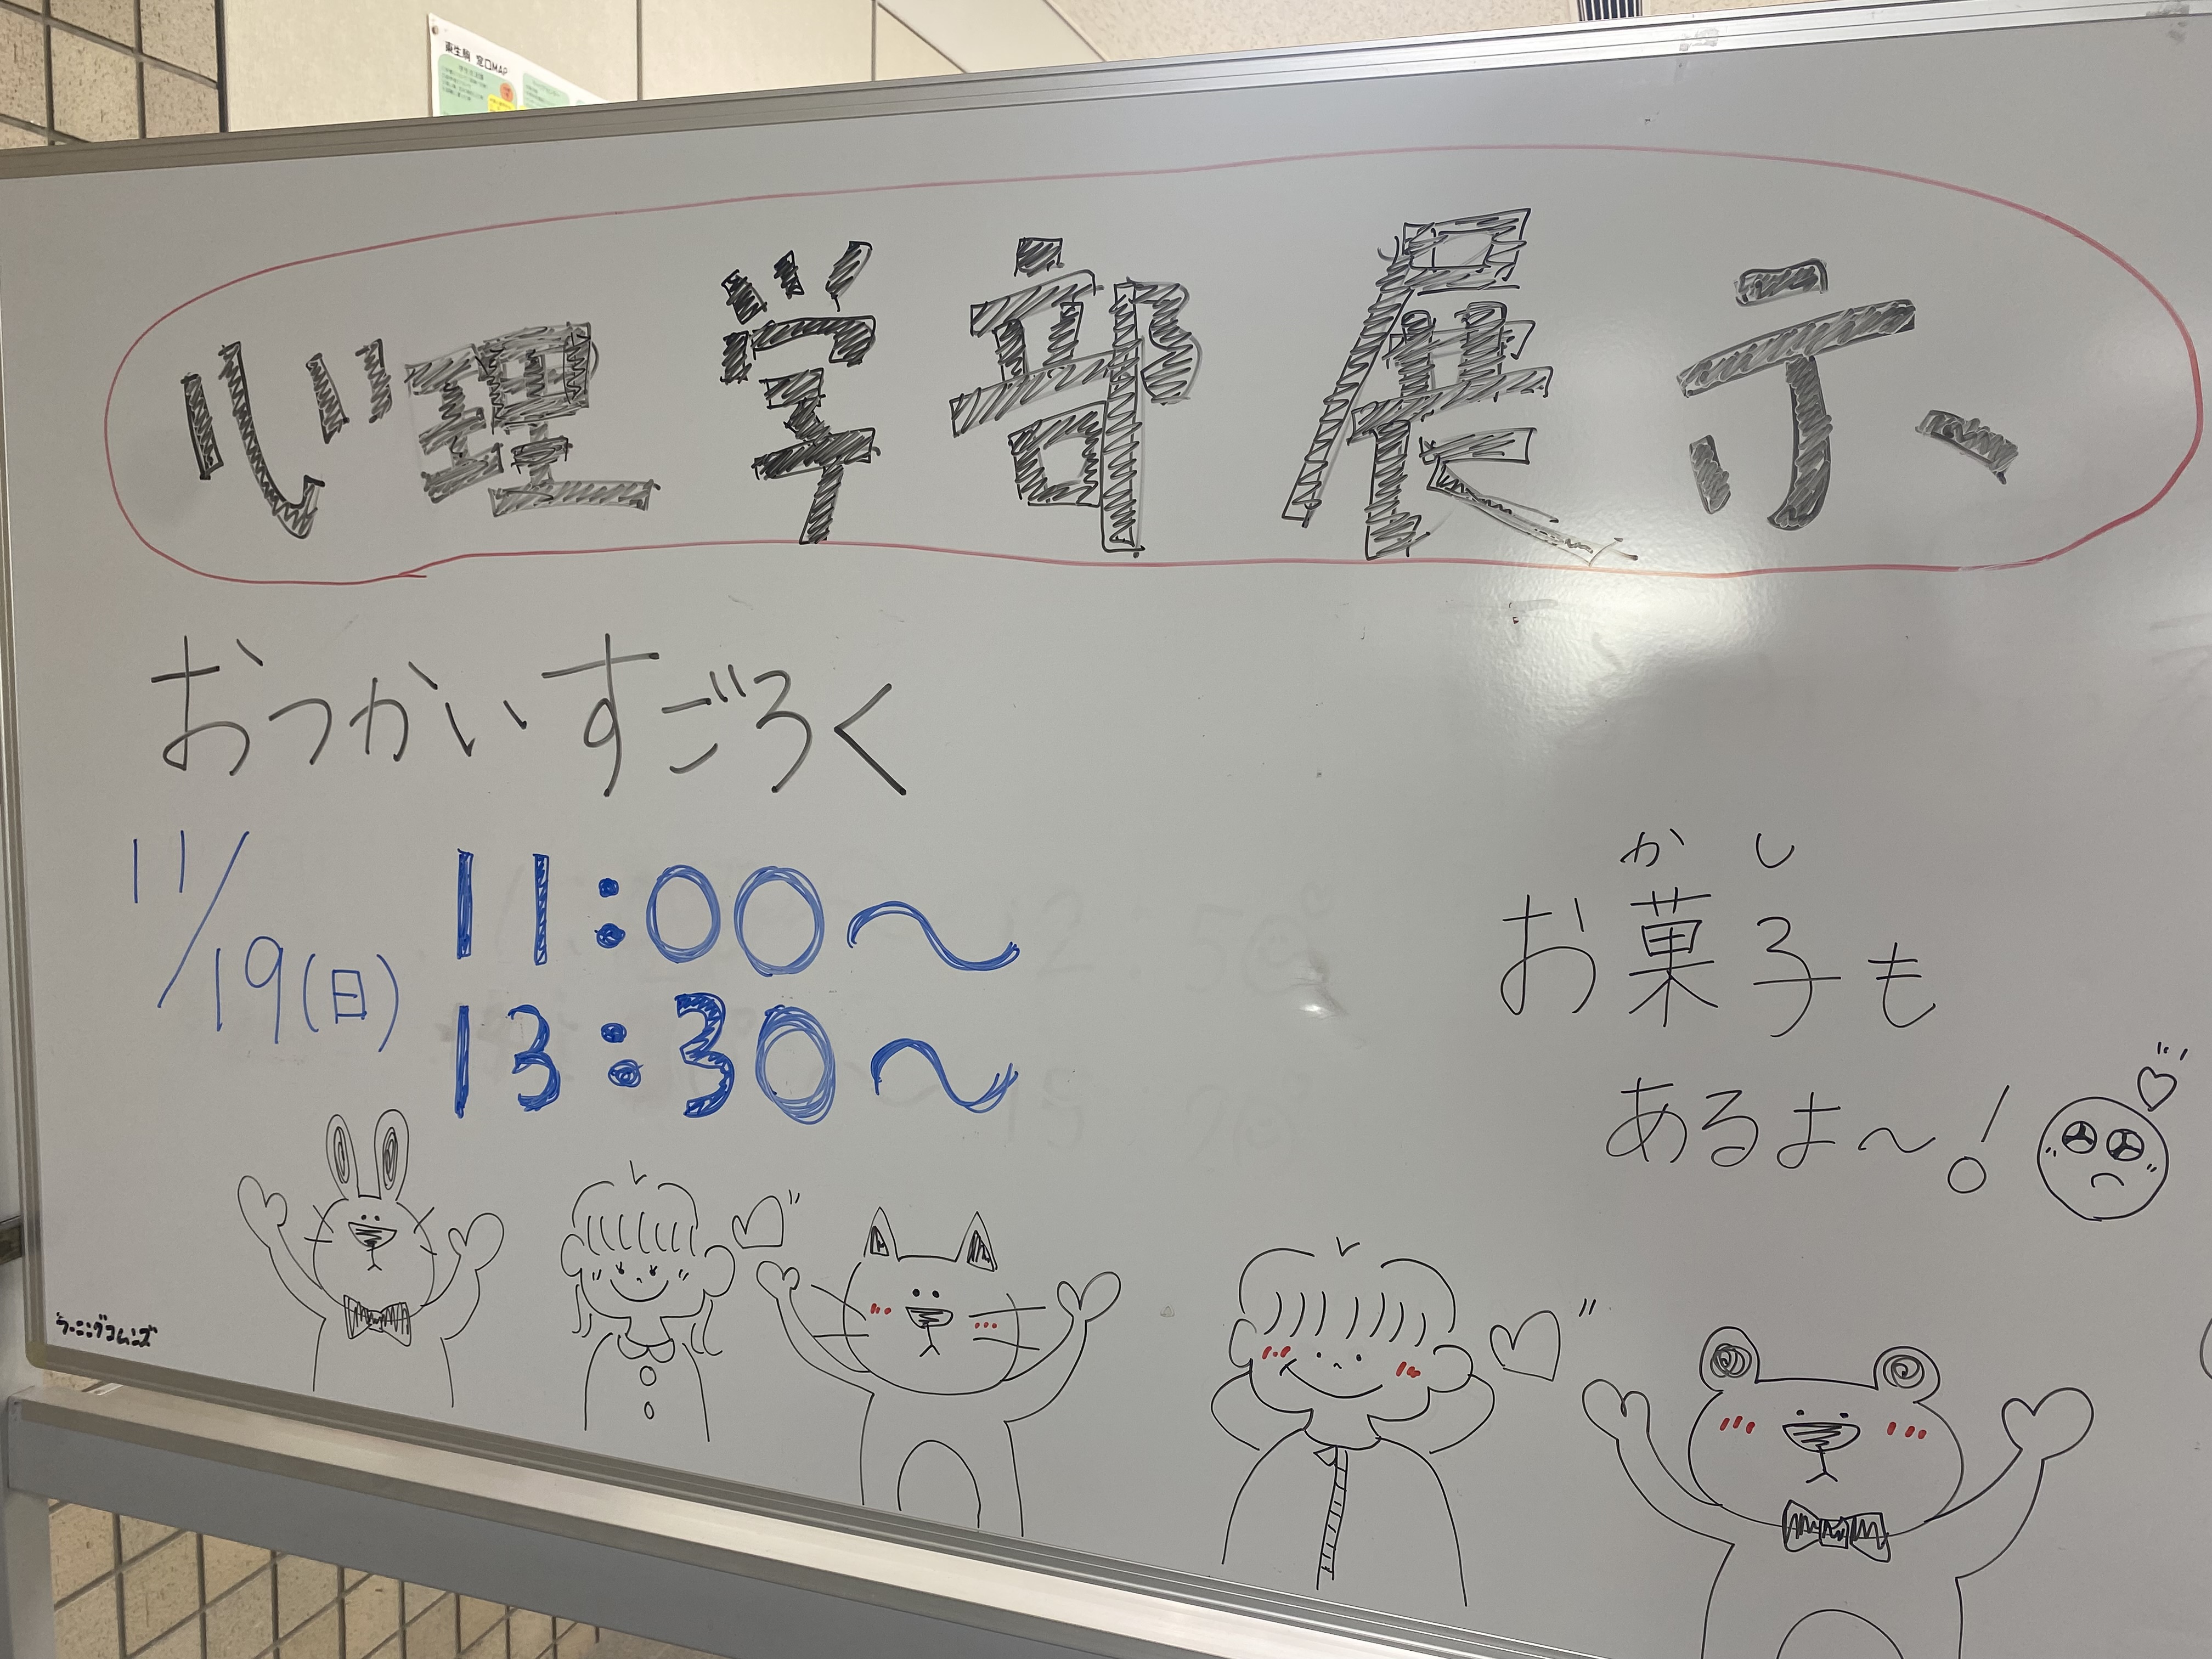 東生駒 窓口MAP
心理学部展示
おつかいすごろく
11/19(日) 11:00〜
13:30〜
かし
お菓子も
あるよ〜!
ラーニングコモンズ